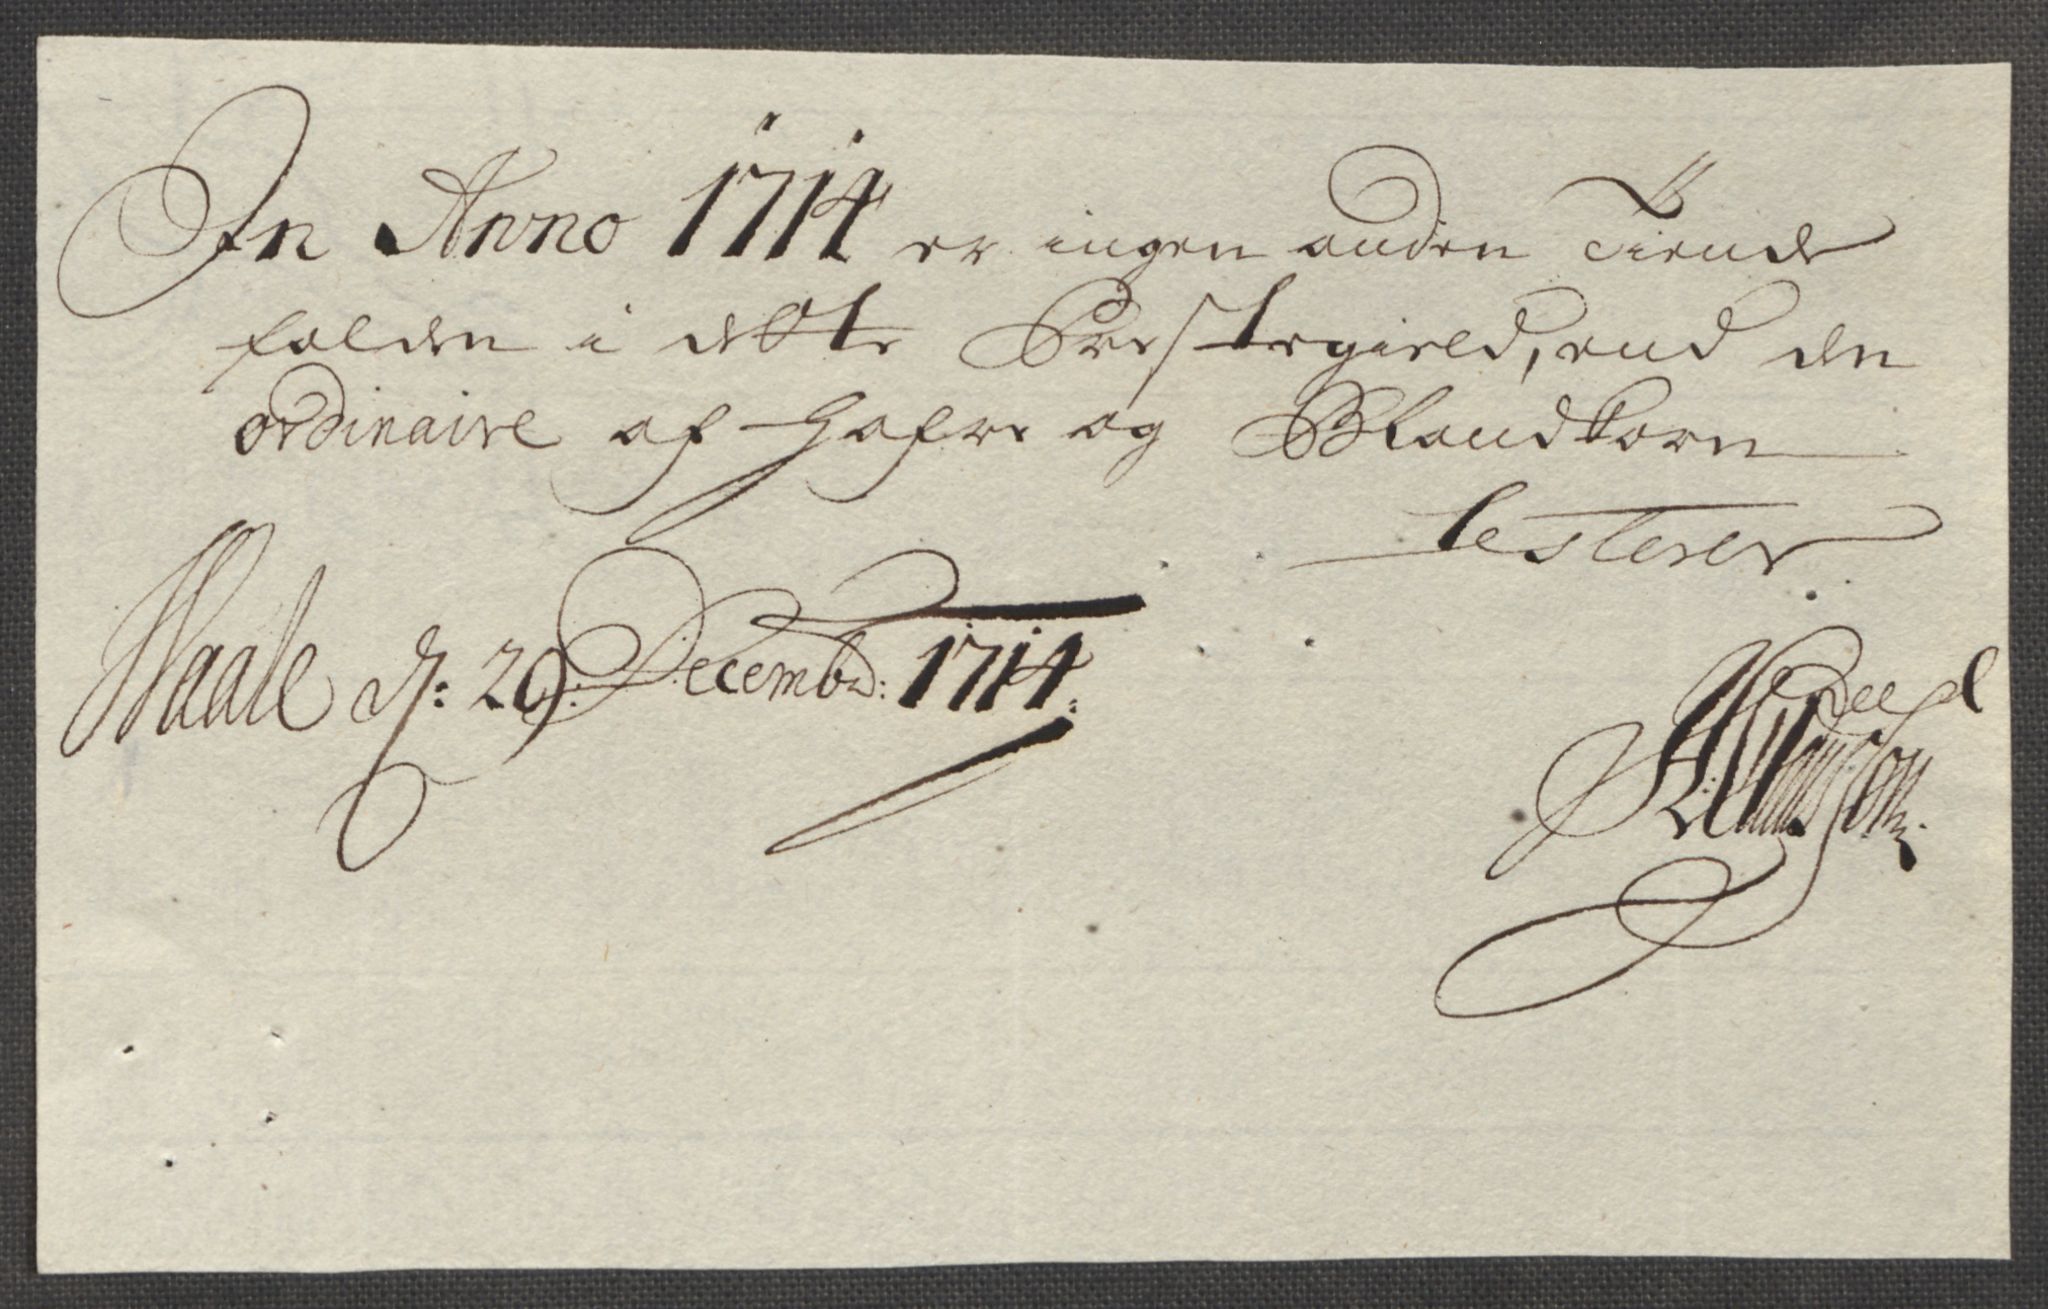 In Anno 1714 er ingen anden Tiende
falden i dette Præstegield, end den
ordinaire af Hafre og Blandkorn
testerer
Waale d: 29. Decembr: 1714.